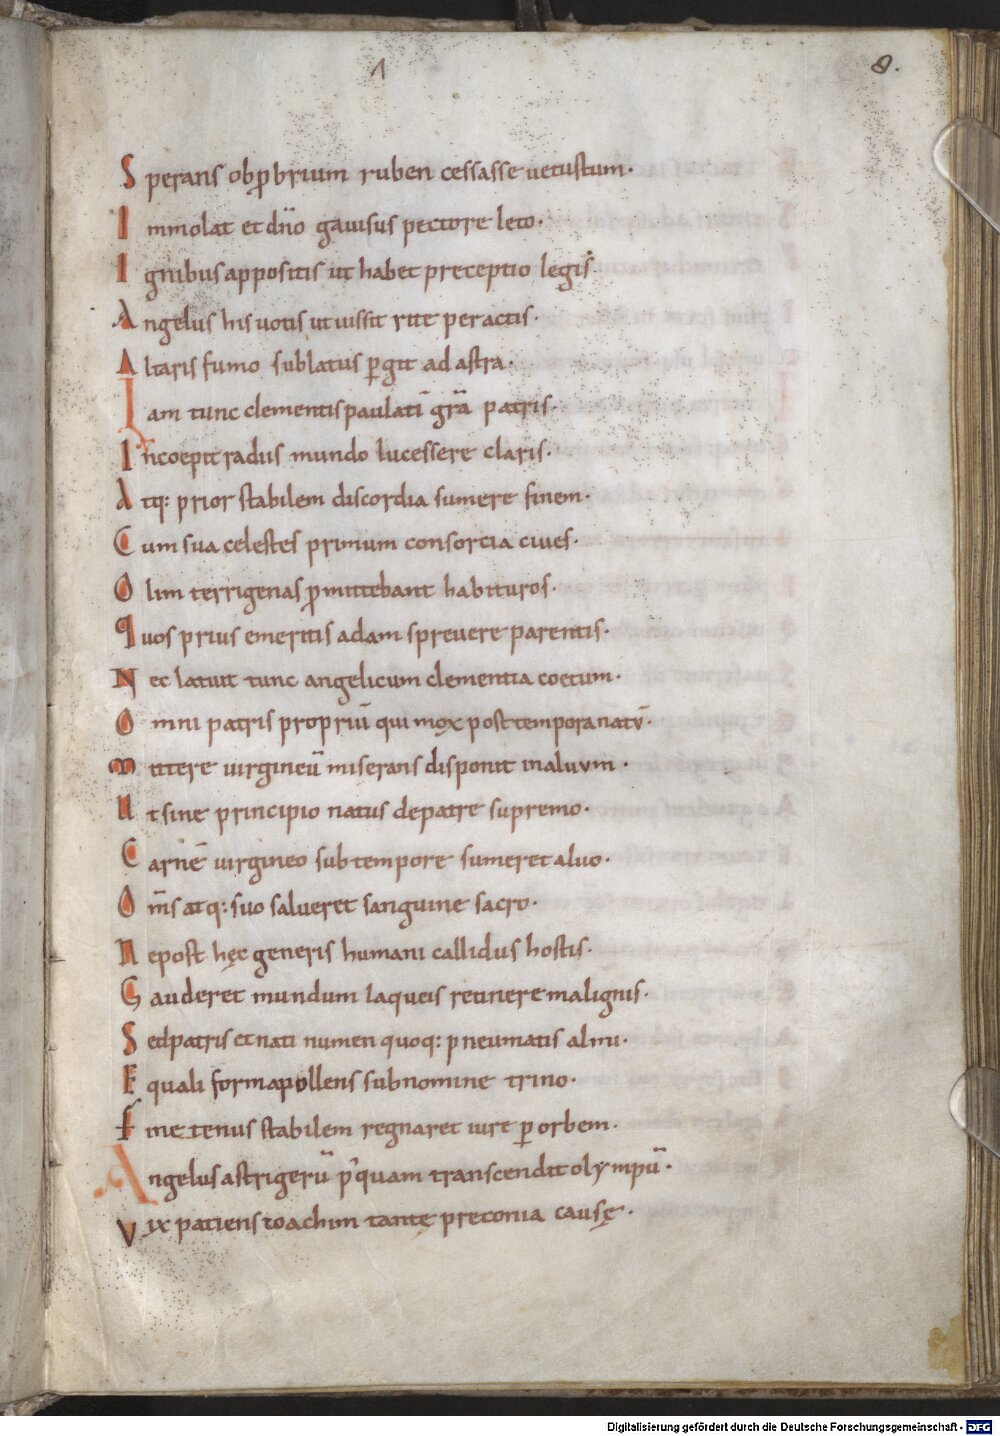 1
8.
Sperans obp̱brium ruben cessasse uetustum·
Immolat et dño gauisus pectore leto·
Ignibus appositis ut habet preceptio legis
Angelus his uotis ut iussit rite peractis·
Altaris fumo sublatus ꝑgit ad astra·
Iam tunc clementis paulatī grā patris·
Incoepit radiis mundo lucessere claris·
Atq: prior stabilem discordia sumere finem·
Cum sua celestes primum consortia ciues·
Olim terrigenas ꝓmittebant habituros·
Quos prius emeritis adam spreuere parentis·
Nec latuit tunc angelicum clementia coetum·
Omni patris propriū qui mox post tempora natū·
Mittere uirgineū miserans disponit in aluum·
Ut sine principio natus de patre supremo·
Carnē uirgineo sub tempore sumeret aluo·
Om̄s atq: suo salueret sanguine sacro·
Ne post hęc generis humani callidus hostis·
Gauderet mundum laqueis retinere malignis·
Sed patris et nati numen quoq: pneumatis almi·
Equali forma pollens sub nomine trino·
Fine tenus stabilem regnaret iure ꝑ orbem·
Angelus astrigerū p̓quam transcendit olympū·
Vix patiens ioachim tantę preconia causę·
Digitalisierung gefördert durch die Deutsche Forschungsgemeinschaft - DFG